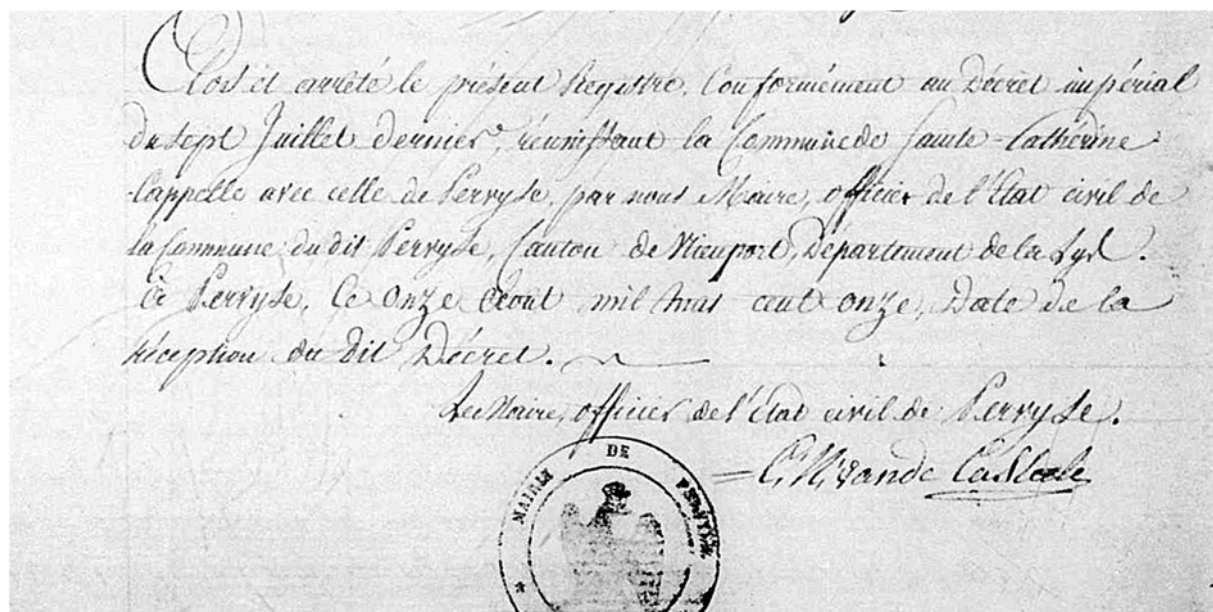 Clos et arrêté le présent Registre, Conformément au Décret impérial
du sept Juillet dernier, réunissant la Commune de Sainte-Catherine
Cappelle avec celle de Pervyse, par nous Maire, officier de l'Etat civil de
la Commune du dit Pervyse, Canton de Nieuport, Département de la Lys.
Ce Pervyse, Ce Onze Aout mil huit cent onze, Date de la
réception du dit Décret.
Le Maire, officier de l'Etat civil de Pervyse.
MAIRIE DE
vande Casteele